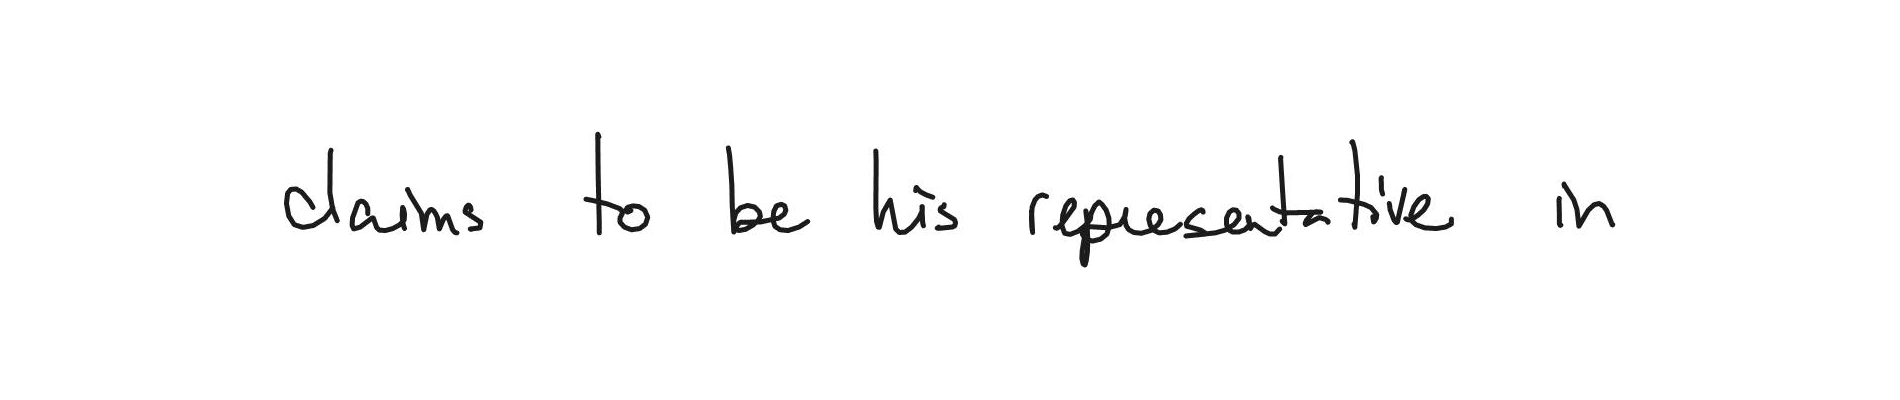 claims to be his representative in